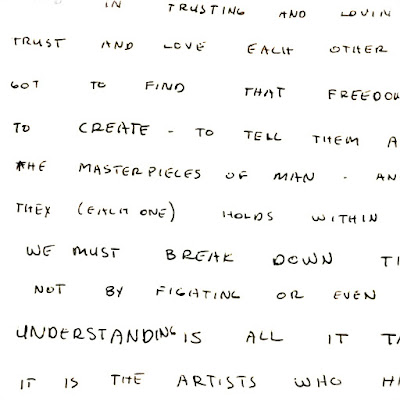 IN TRUSTING AND LOVIN
TRUST AND LOVE EACH OTHER
GOT TO FIND THAT FREEDO
TO CREATE - TO TELL THEM A
THE MASTERPIECES OF MAN - AN
THEY (EACH ONE) HOLDS WITHIN
WE MUST BREAK DOWN T
NOT BY FIGHTING OR EVEN
UNDERSTANDING IS ALL IT TA
IT IS THE ARTISTS WHO H